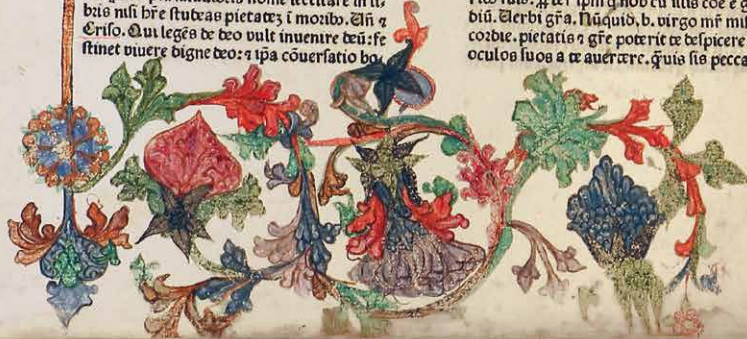 bris nisi hr̄e studeas pietateʒ ī moribꝰ. Uñ ⁊
Criso. Qui legēs de deo vult invenire deū: fe
stinet viuere digne deo: ⁊ ip̄a cōuersatio bo
diū. Uerbi gr̄a. Nūquid .b. virgo mr̄ mi
cordie. pietatis ⁊ gr̄e poterit te despicere
oculos suos a te auertere. q̄uis sis pecca